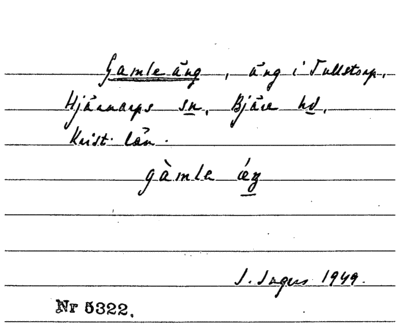 Gamle äng, äng i Tullstorp,
Hjärnarps sn, Bjäre hd,
Krist. län.
gàmle ǽŋ
J. Ingers 1949.
Nr 5322.